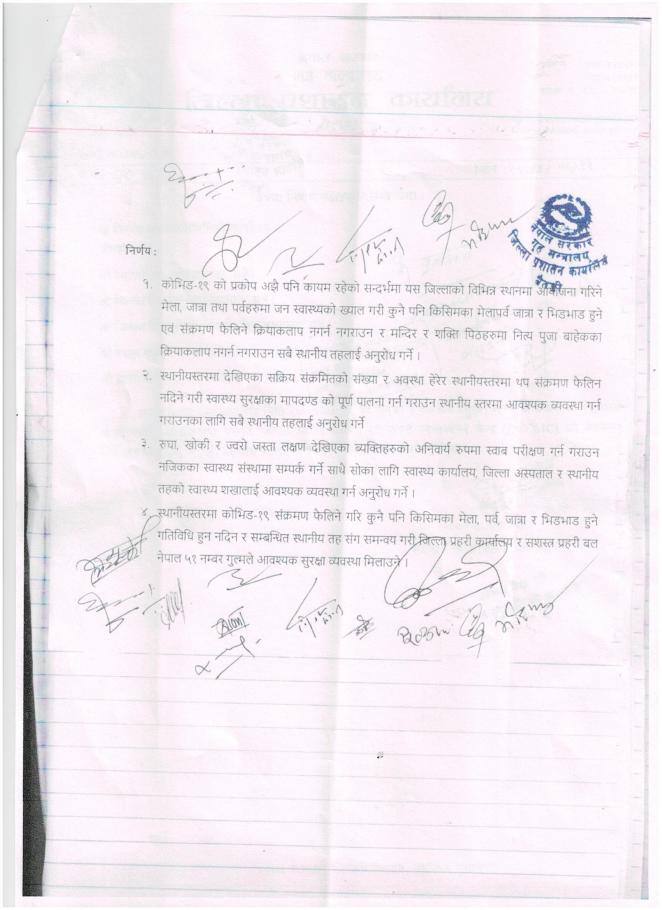 नेपाल सरकार
गृह मन्त्रालय
जिल्ला प्रशासन कार्यालय
बैतडी
निर्णय :
१. कोभिड-१९ को प्रकोप अझै पनि कायम रहेको सन्दर्भमा यस जिल्लाको विभिन्न स्थानमा आयोजना गरिने
मेला, जात्रा तथा पर्वहरुमा जन स्वास्थ्यको ख्याल गरी कुनै पनि किसिमका मेलापर्व जात्रा र भिडभाड हुने
एवं संक्रमण फैलिने क्रियाकलाप नगर्न नगराउन र मन्दिर र शक्ति पिठहरुमा नित्य पुजा बाहेकका
क्रियाकलाप नगर्न नगराउन सबै स्थानीय तहलाई अनुरोध गर्ने ।
२. स्थानीयस्तरमा देखिएका सक्रिय संक्रमितको संख्या र अवस्था हेरेर स्थानीयस्तरमा थप संक्रमण फैलिन
नदिने गरी स्वास्थ्य सुरक्षाका मापदण्ड को पूर्ण पालना गर्न गराउन स्थानीय स्तरमा आवश्यक व्यवस्था गर्न
गराउनका लागि सबै स्थानीय तहलाई अनुरोध गर्ने
३. रुघा, खोकी र ज्वरो जस्ता लक्षण देखिएका ब्यक्तिहरुको अनिवार्य रुपमा स्वाब परीक्षण गर्न गराउन
नजिकका स्वास्थ्य संस्थामा सम्पर्क गर्ने साथै सोका लागि स्वास्थ्य कार्यालय, जिल्ला अस्पताल र स्थानीय
तहको स्वास्थ्य शखालाई आवश्यक व्यवस्था गर्न अनुरोध गर्ने ।
४. स्थानीयस्तरमा कोभिड-१९ संक्रमण फैलिने गरि कुनै पनि किसिमका मेला, पर्व, जात्रा र भिडभाड हुने
गतिविधि हुन नदिन र सम्बन्धित स्थानीय तह संग समन्वय गरी जिल्ला प्रहरी कार्यालय र सशस्त्र प्रहरी बल
नेपाल ५१ नम्बर गुल्मले आवश्यक सुरक्षा व्यवस्था मिलाउने ।